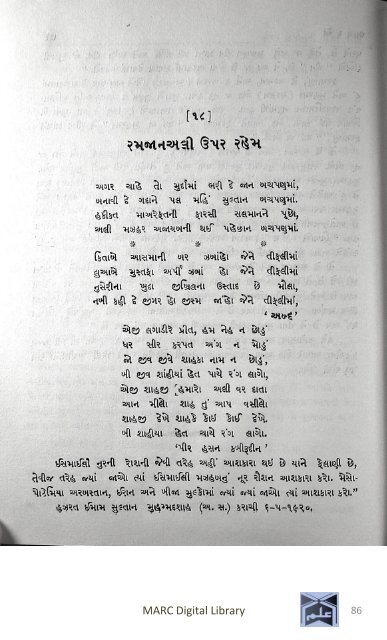 [૧૮]
રમજાનઅલી ઉપર રહેમ
અગર ચાહે તો મુર્દામાં ભરી દે જાન બચપણુમાં,
બનાવી દે ગદાને પલ મહિં સુલ્તાન બચપણુમાં.
હકીકત મઅરેફતની ફારસી સલમાનને પૂછો,
અલી મઝહર અજાયબની થઈ પહેછાન બચપણુમાં.
* * *
કિતાબે આસમાની બર ઝબાં હો જેને તીફલીમાં
દુઆએ મુસ્તફા અર્પી ઝબાં હો જેને તીફલીમાં
નુસેરીના ખુદા જીબ્રિલના ઉસ્તાદ છે મૌલા,
નબી કહી દે જીગર હો જીસ્મ જાં હો જેને તીફલીમાં,
'અબ્દ'
એજી લગાડીરે પ્રીત, હમ નેહ ન છોડું
ધર સીર કરપત અંગ ન મોડું
જો જીવ જીવે શાહકા નામ ન છોડું,
બી જીવ શાંહીયાં હેત પાયે રંગ લાગો,
એજી શાહજી હમારો અલી વર દાતા
આન મીલો શાહ તું આપ વસીલો
શાહજી દેખે શાહકે કોઈ કોઈ દેખે.
બી શાહીયા હેત ચાયે રંગ લાગો.
'પીર હસન કબીરૂદીન'
ઈસમાઈલી નુરની રોશની જેવી તરેહ અહીં આશકારા થઈ છે યાને ફેલાણી છે,
તેવીજ તરેહ જ્યાં જાઓ ત્યાં ઈસમાઈલી મઝહબનું નૂર રોશન આશકારા કરો. મેસો-
પોટેમિયા અરબસ્તાન, ઈરાન અને બીજા મુલ્કોમાં જ્યાં જ્યાં જાઓ ત્યાં આશકારા કરો."
હઝરત ઈમામ સુલ્તાન મુહમ્મદશાહ (અ. સ.) કરાચી ૬-૫-૧૯૨૦.
MARC Digital Library
86